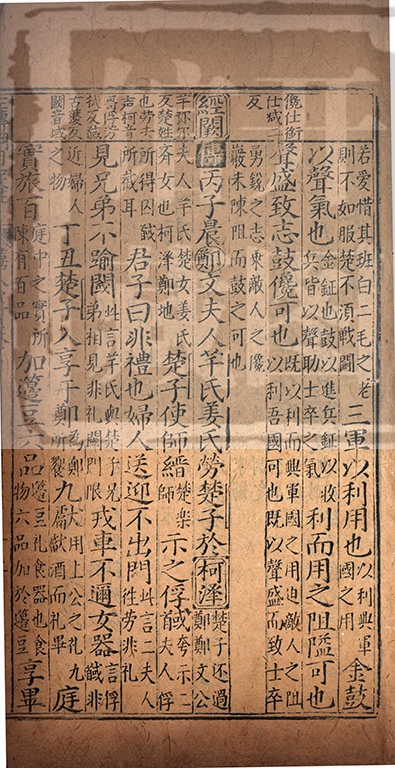 若愛惜其班白二毛之老
則不如服楚不須戰鬭
三軍以利用也
以利興軍
國之用
金鼓
以聲氣也
金鉦也鼓以進兵鉦以收
兵皆以聲助士卒之氣
利而用之阻隘可也
儳仕銜
仕咸二
反
聲盛致志鼓儳可也
既以利而興軍國之用迫敵人之阻
以利吾國可也既以聲盛而致士卒
勇銳之志乘敵人之儳
巖未陳阻而鼓之可也
經闕
傳丙子晨鄭文夫人羋氏姜氏勞楚子於柯澤
楚子还過
鄭鄭文公
羋弥尔
反楚姓
也勞去
声柯音
哥俘芳
扶反馘
古獲反
閾音域
夫人羋氏楚女姜氏
齊女也柯澤鄭地
楚子使師縉
楚樂
師
示之俘
夸示二
夫人俘
所得囚
所截耳
君子曰非禮也婦人送迎不出門
此言二夫人
往勞非礼
見兄弟不踰閾
此言羋氏與楚子兄
弟相見非礼閾門限
戎車不邇女器
言俘
馘非
近婦人
之物
丁丑楚子入享于鄭
為鄭
所饗
九獻
用上公之礼九
獻酒而礼畢
庭
實旅百
庭中之實所
陳有百品
加籩豆六品
籩豆礼食器也食
物六品加於籩豆
享畢